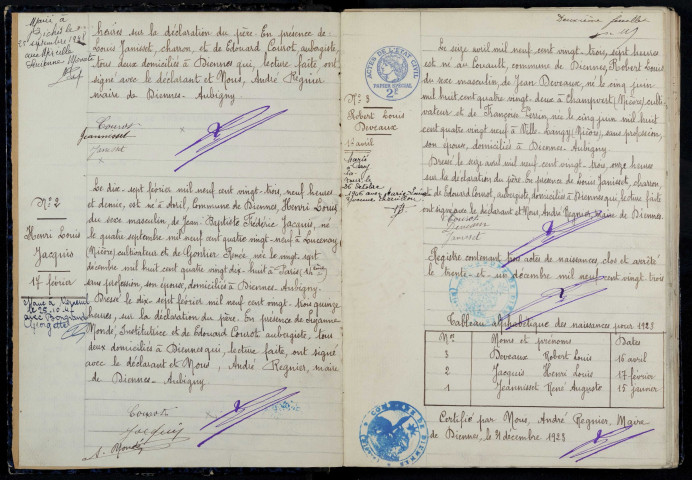 Marié à
25 septembre 1948
heures sur la déclaration du père. En présence de
Louis Janisset, charron, et de Edouard Couvot, aubergiste,
tous deux domiciliés à Biennes qui, lecture faite, ont
signé avec le déclarant et Nous, André Regnier
maire de Biennes-Aubigny.
Couvot
Jeannisset
Janiset
N° 2
Henri Louis
Jacquis
17 février
Marié à
le 25.10.47
avec
Georgette
Le dix-sept février mil neuf cent vingt-trois, neuf heures
et demie, est né à Avril, Commune de Biennes, Henri Louis
du sexe masculin, de Jean-Baptiste Frédéric Jacquis, né
le quatre septembre mil neuf cent quatre vingt-neuf à Lucenay
(Nièvre), cultivateur et de Gontier Renée née le vingt sept
décembre mil huit cent quatre vingt-dix-huit à Paris
sans profession, son épouse, domiciliés à Biennes-Aubigny.
Dressé le dix-sept février mil neuf cent vingt-trois quinze
heures, sur la déclaration du père. En présence de Suzanne
Monde, Institutrice et de Edouard Couvot aubergiste, tous
deux domiciliés à Biennes qui, lecture faite, ont signé
avec le déclarant et Nous, André Regnier, maire
de Biennes-Aubigny.
Couvot
Jacquis
S. Monde
Deuxième feuillet
ACTES DE L'ÉTAT CIVIL
2F
N° 3
Robert Louis
Deveaux
16 avril
marié
26 octobre
1946 avec Marie Louise
Yvonne
Le seize avril mil neuf cent vingt-trois, sept heures
est né au Couault, commune de Biennes, Robert Louis
du sexe masculin, de Jean Deveaux, né le cinq juin
mil huit cent quatre vingt-deux à Champvert (Nièvre), culti
vateur et de Françoise Perrin née le cinq juin mil huit
cent quatre vingt neuf à Ville-Langy (Nièvre), sans profession,
son épouse, domiciliés à Biennes-Aubigny.
Dressé le seize avril mil neuf cent vingt-trois, onze heures
sur la déclaration du père. En présence de Louis Janisset, charron,
et de Edouard Couvot, aubergiste, domiciliés à Biennes qui, lecture faite
ont signé avec le déclarant et Nous, André Regnier, Maire de Biennes.
Couvot
Deveaux
Janisset
Registre contenant trois actes de naissances, clos et arrêté
le trente-et-un décembre mil neuf cent vingt-trois
Tableau alphabétique des naissances pour 1923
Nos Noms et prénoms Dates
3 Deveaux Robert Louis 16 avril
2 Jacquis Henri Louis 17 février
1 Jeannisset René Auguste 15 janvier
Certifié par Nous, André Regnier, Maire
de Biennes, le 31 décembre 1923
COMMUNE DE BIENNES